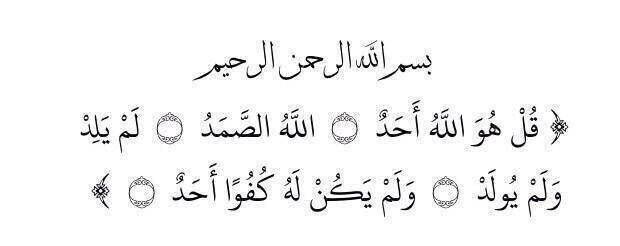 بسم الله الرحمن الرحيم
﴿ قُلْ هُوَ اللَّهُ أَحَدٌ ۝ اللَّهُ الصَّمَدُ ۝ لَمْ يَلِدْ
وَلَمْ يُولَدْ ۝ وَلَمْ يَكُنْ لَهُ كُفُوًا أَحَدٌ ۝ ﴾